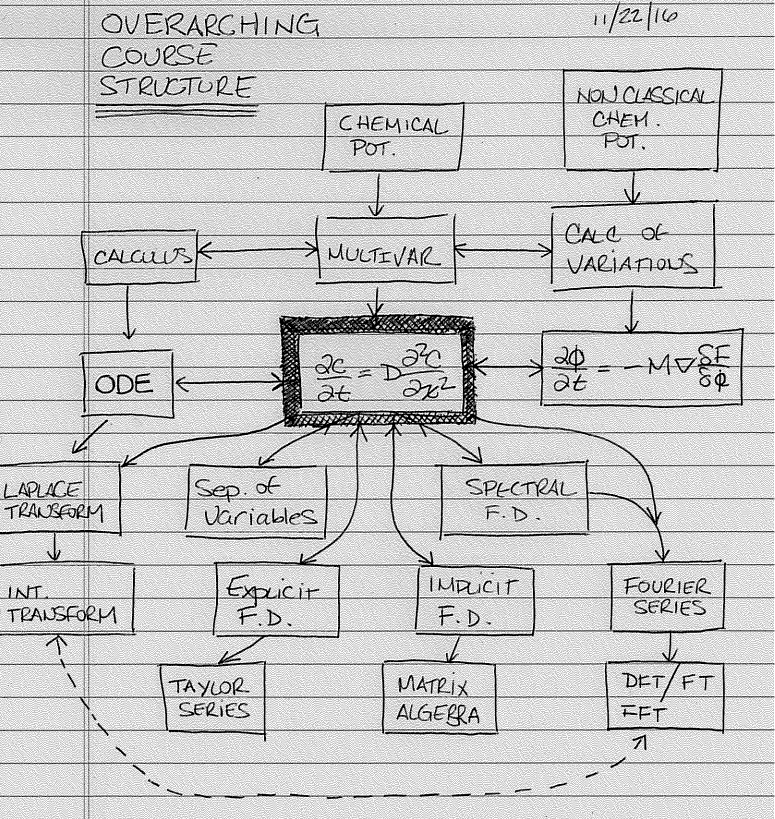 OVERARCHING
COURSE
STRUCTURE
11/22/16
CHEMICAL
POT.
NONCLASSICAL
CHEM.
POT.
CALCULUS
MULTIVAR
CALC OF
VARIATIONS
ODE
∂c/∂t = D ∂²c/∂x²
∂ϕ/∂t = -M∇ δF/δϕ
LAPLACE
TRANSFORM
Sep. of
Variables
SPECTRAL
F.D.
INT.
TRANSFORM
Explicit
F.D.
IMPLICIT
F.D.
FOURIER
SERIES
TAYLOR
SERIES
MATRIX
ALGEBRA
DFT/FT
FFT